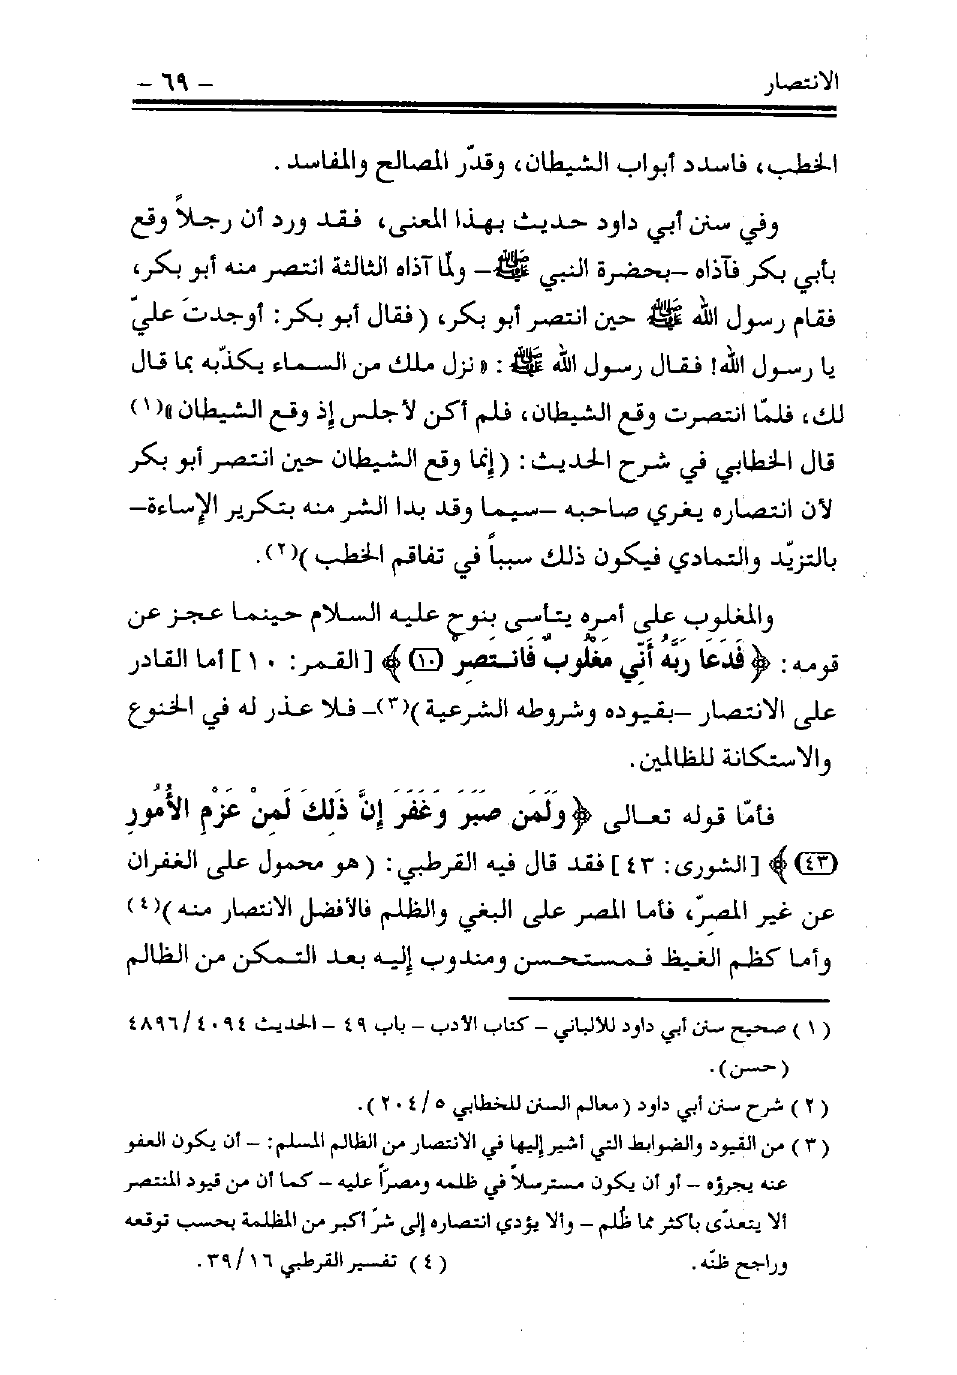 الانتصار
– ٦٩ –
الخطب، فاسدد أبواب الشيطان، وقدّر المصالح والمفاسد .
وفي سنن أبي داود حديث بهذا المعنى، فقد ورد أن رجلاً وقع
بأبي بكر فآذاه –بحضرة النبي ﷺ– ولمّا آذاه الثالثة انتصر منه أبو بكر،
فقام رسول الله ﷺ حين انتصر أبو بكر، (فقال أبو بكر: أوجدتَ عليّ
يا رسول الله! فقال رسول الله ﷺ : «نزل ملك من السماء يكذّبه بما قال
لك، فلمّا انتصرت وقع الشيطان، فلم أكن لأجلس إذ وقع الشيطان»(١)
قال الخطابي في شرح الحديث: (إنما وقع الشيطان حين انتصر أبو بكر
لأن انتصاره يغري صاحبه –سيما وقد بدا الشر منه بتكرير الإساءة–
بالتزيّد والتمادي فيكون ذلك سبباً في تفاقم الخطب)(٢).
والمغلوب على أمره يتأسى بنوح عليه السلام حينما عجز عن
قومه: ﴿فَدَعَا رَبَّهُ أَنِّي مَغْلُوبٌ فَانتَصِرْ (١٠)﴾ [القمر: ١٠] أما القادر
على الانتصار –بقيوده وشروطه الشرعية)(٣)– فلا عذر له في الخنوع
والاستكانة للظالمين.
فأمّا قوله تعالى ﴿وَلَمَن صَبَرَ وَغَفَرَ إِنَّ ذَلِكَ لَمِنْ عَزْمِ الأُمُورِ
(٤٣)﴾ [الشورى: ٤٣] فقد قال فيه القرطبي: (هو محمول على الغفران
عن غير المصرّ، فأما المصر على البغي والظلم فالأفضل الانتصار منه)(٤)
وأما كظم الغيظ فمستحسن ومندوب إليه بعد التمكن من الظالم
(١) صحيح سنن أبي داود للألباني – كتاب الأدب – باب ٤٩ – الحديث ٤٠٩٤/٤٨٩٦
(حسن).
(٢) شرح سنن أبي داود (معالم السنن للخطابي ٢٠٤/٥).
(٣) من القيود والضوابط التي أشير إليها في الانتصار من الظالم المسلم: – أن يكون العفو
عنه يجرؤه – أو أن يكون مسترسلاً في ظلمه ومصرّاً عليه – كما أن من قيود المنتصر
ألا يتعدّى بأكثر مما ظُلم – وألا يؤدي انتصاره إلى شرّ أكبر من المظلمة بحسب توقعه
وراجح ظنّه. (٤) تفسير القرطبي ٣٩/١٦.